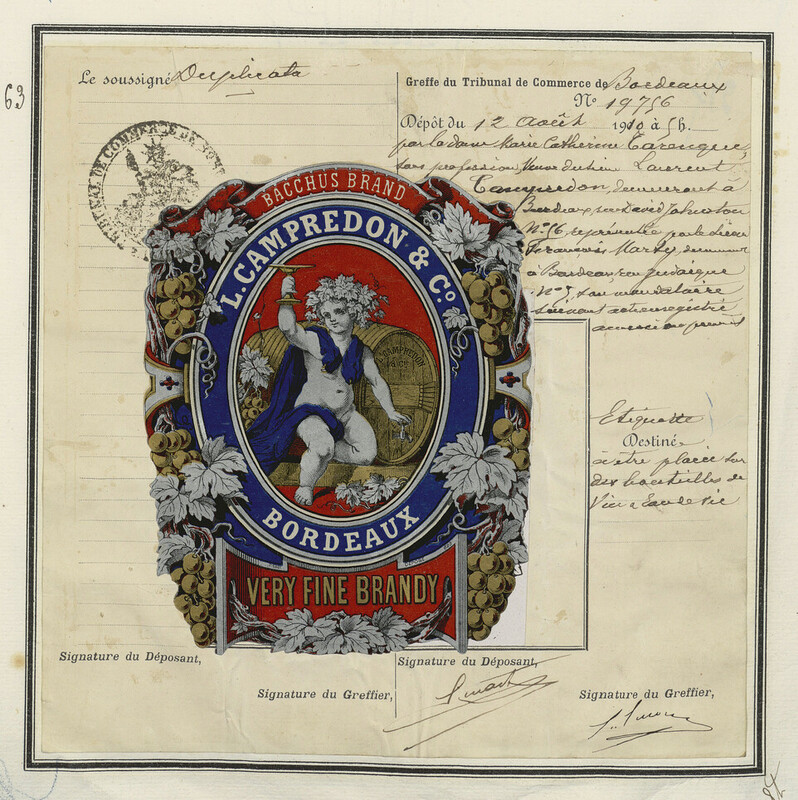 63
Le soussigné Duplicata
Greffe du Tribunal de Commerce de Bordeaux
N° 19756
Dépôt du 12 Août 1910 à 5h.
par la dame Marie Catherine
sans profession, Veuve du sieur Laurent
Campredon, demeurant à
Bordeaux, rue David Johnston
N° 56 représentée par le sieur
François Marty, demeurant
à Bordeaux rue Judaïque
N° 5 son mandataire
suivant acte enregistré
TRIBUNAL DE COMMERCE DE
BACCHUS BRAND
L. CAMPREDON & Cº
CAMPREDON
BORDEAUX
VERY FINE BRANDY
Etiquette
Destiné
à être placée sur
des bouteilles de
Vin & Eau de Vie
Signature du Déposant,
Signature du Greffier,
Signature du Déposant,
Signature du Greffier,